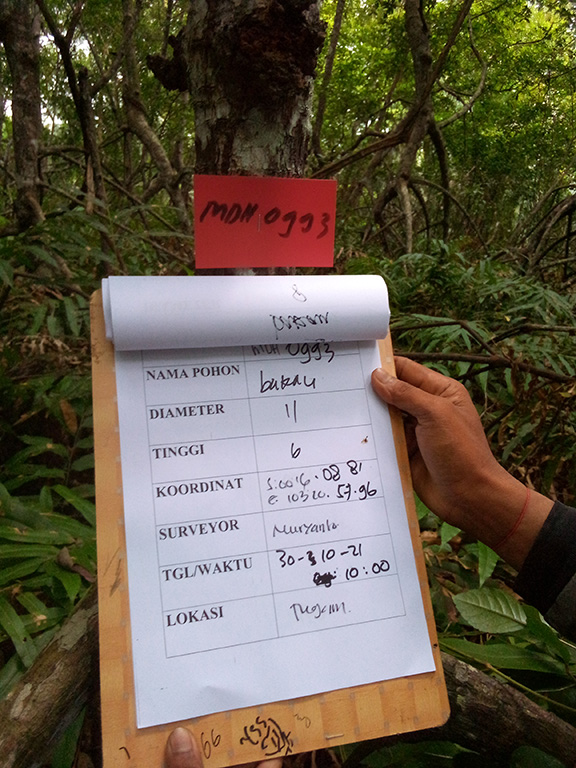 MDH 0993
MDH 0993
NAMA POHON bakau
DIAMETER 11
TINGGI 6
KOORDINAT S:0016.08 81
E:10320.57.96
SURVEYOR Muryanto
TGL/WAKTU 30-10-21
10:00
LOKASI
66